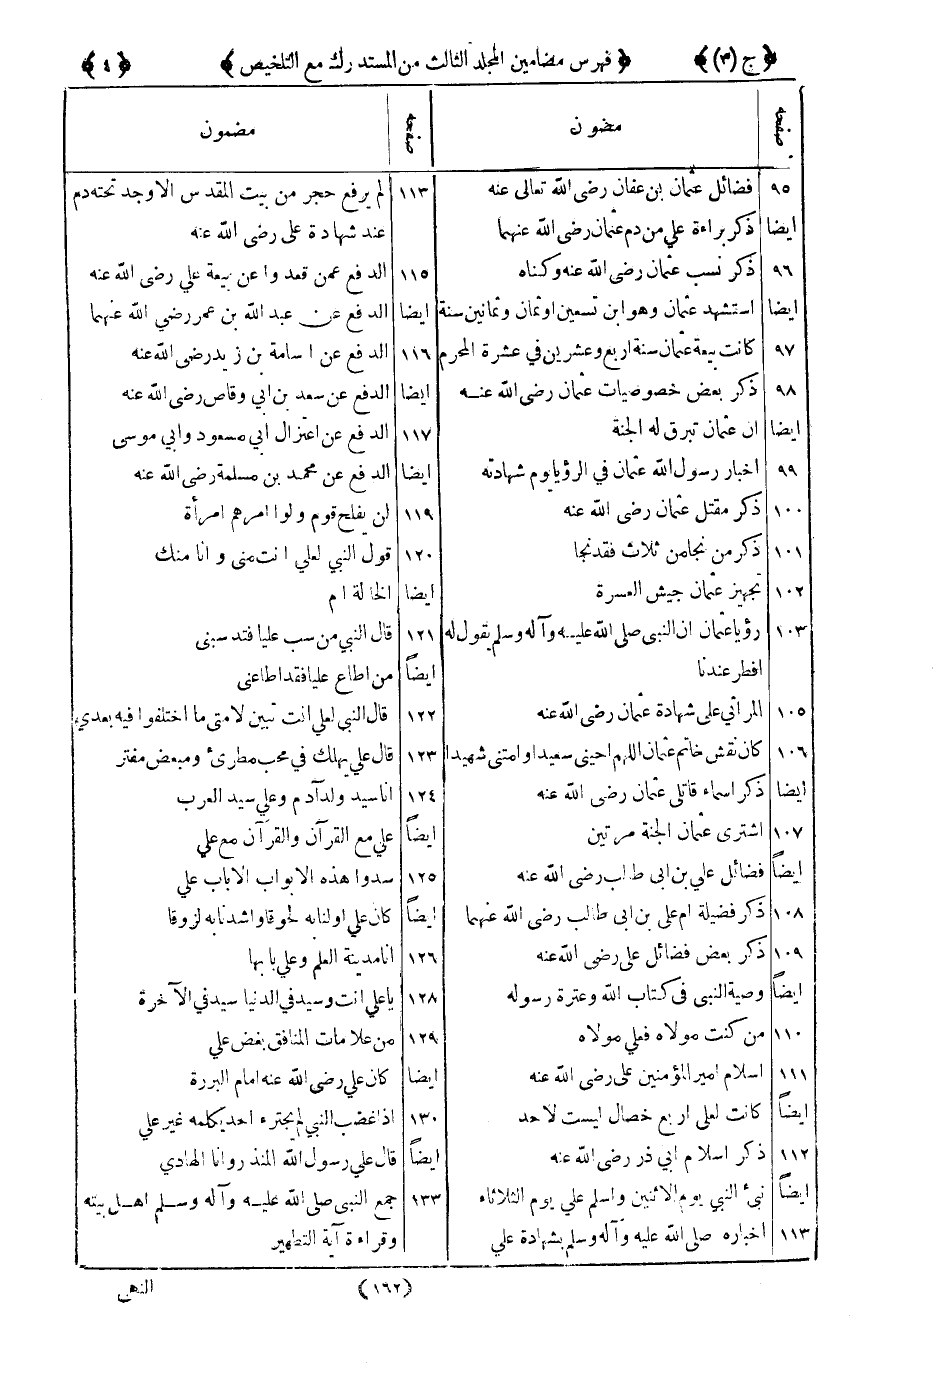 ﴿ ج (٣) ﴾ ﴿ فهرس مضامين المجلد الثالث من المستدرك مع التلخيص ﴾ ﴿ ٤ ﴾
صفحه مضمون
٩٥ فضائل عثمان بن عفان رضى الله تعالى عنه
ايضا ذكر براءة علي من دم عثمان رضى الله عنهما
٩٦ ذكر نسب عثمان رضى الله عنه وكناه
ايضا استشهد عثمان وهو ابن تسعين او ثمان وثمانين سنة
٩٧ كانت بيعة عثمان سنة اربع وعشرين في عشرة المحرم
٩٨ ذكر بعض خصوصيات عثمان رضى الله عنه
ايضا ان عثمان تبرق له الجنة
٩٩ اخبار رسول الله عثمان في الرؤيا يوم شهادته
١٠٠ ذكر مقتل عثمان رضى الله عنه
١٠١ ذكر من نجا من ثلاث فقد نجا
١٠٢ تجهيز عثمان جيش العسرة
١٠٣ رؤيا عثمان ان النبى صلى الله عليه وآله وسلم يقول له
افطر عندنا
١٠٥ المراثي على شهادة عثمان رضى الله عنه
١٠٦ كان نقش خاتم عثمان اللهم احينى سعيدا وامتنى شهيدا
ايضا ذكر اسماء قاتلى عثمان رضى الله عنه
١٠٧ اشترى عثمان الجنة مرتين
ايضاً فضائل علي بن ابى طالب رضى الله عنه
١٠٨ ذكر فضيلة ام على بن ابى طالب رضى الله عنهما
١٠٩ ذكر بعض فضائل على رضى الله عنه
ايضاً وصية النبى فى كتاب الله وعترة رسوله
١١٠ من كنت مولاه فعلي مولاه
١١١ اسلام امير المؤمنين على رضى الله عنه
ايضاً كانت لعلى اربع خصال ليست لاحد
١١٢ ذكر اسلام ابي ذر رضى الله عنه
ايضاً نبئ النبي يوم الاثنين واسلم علي يوم الثلاثاء
١١٣ اخباره صلى الله عليه وآله وسلم بشهادة علي
صفحه مضمون
١١٣ لم يرفع حجر من بيت المقدس الا وجد تحته دم
عند شهادة على رضى الله عنه
١١٥ الدفع عمن قعدوا عن بيعة علي رضى الله عنه
ايضا الدفع عن عبد الله بن عمر رضي الله عنهما
١١٦ الدفع عن اسامة بن زيد رضى الله عنه
ايضا الدفع عن سعد بن ابي وقاص رضى الله عنه
١١٧ الدفع عن اعتزال ابي مسعود وابي موسى
ايضا الدفع عن محمد بن مسلمة رضى الله عنه
١١٩ لن يفلح قوم ولوا امرهم امرأة
١٢٠ قول النبي لعلي انت منى وانا منك
ايضا الخالة ام
١٢١ قال النبي من سب عليا فقد سبنى
ايضاً من اطاع عليا فقد اطاعنى
١٢٢ قال النبي لعلي انت تبين لامتى ما اختلفوا فيه بعدي
١٢٣ قال علي يهلك في محب مطرئ ومبغض مفتر
١٢٤ انا سيد ولد آدم وعلي سيد العرب
ايضاً علي مع القرآن والقرآن مع علي
١٢٥ سدوا هذه الابواب الا باب علي
ايضاً كان علي اولنا به لحوقا واشدنا به لزوقا
١٢٦ انا مدينة العلم وعلي بابها
١٢٨ يا علي انت وسيد في الدنيا سيد في الآخرة
١٢٩ من علامات المنافق بغض علي
ايضا كان علي رضى الله عنه امام البررة
١٣٠ اذا غضب النبي لم يجترء احد يكلمه غير علي
ايضاً قال علي رسول الله المنذر وانا الهادي
١٣٣ جمع النبى صلى الله عليه وآله وسلم اهل بيته
وقراءة آية التطهير
(١٦٢)